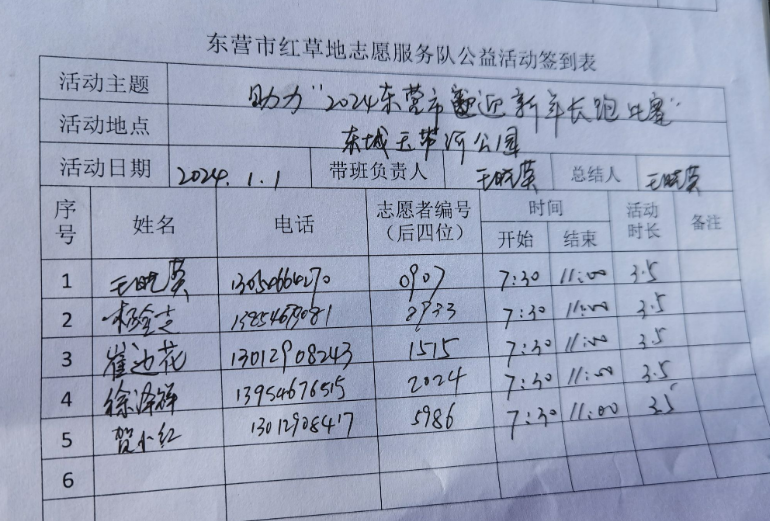 东营市红草地志愿服务队公益活动签到表
活动主题 助力"2024东营市迎新年长跑比赛"
活动地点 东城玉带河公园
活动日期 2024.1.1 带班负责人 王晓英 总结人 王晓英
序号 姓名 电话 志愿者编号（后四位） 时间 开始 结束 活动时长 备注
1 王晓英 13050664270 0907 7:30 11:00 3.5
2 7:30 11:00 3.5
3 崔边花 13012908243 1515 7:30 11:00 3.5
4 徐泽祥 13954676515 2024 7:30 11:00 3.5
5 贺小红 13012908417 5986 7:30 11:00 3.5
6